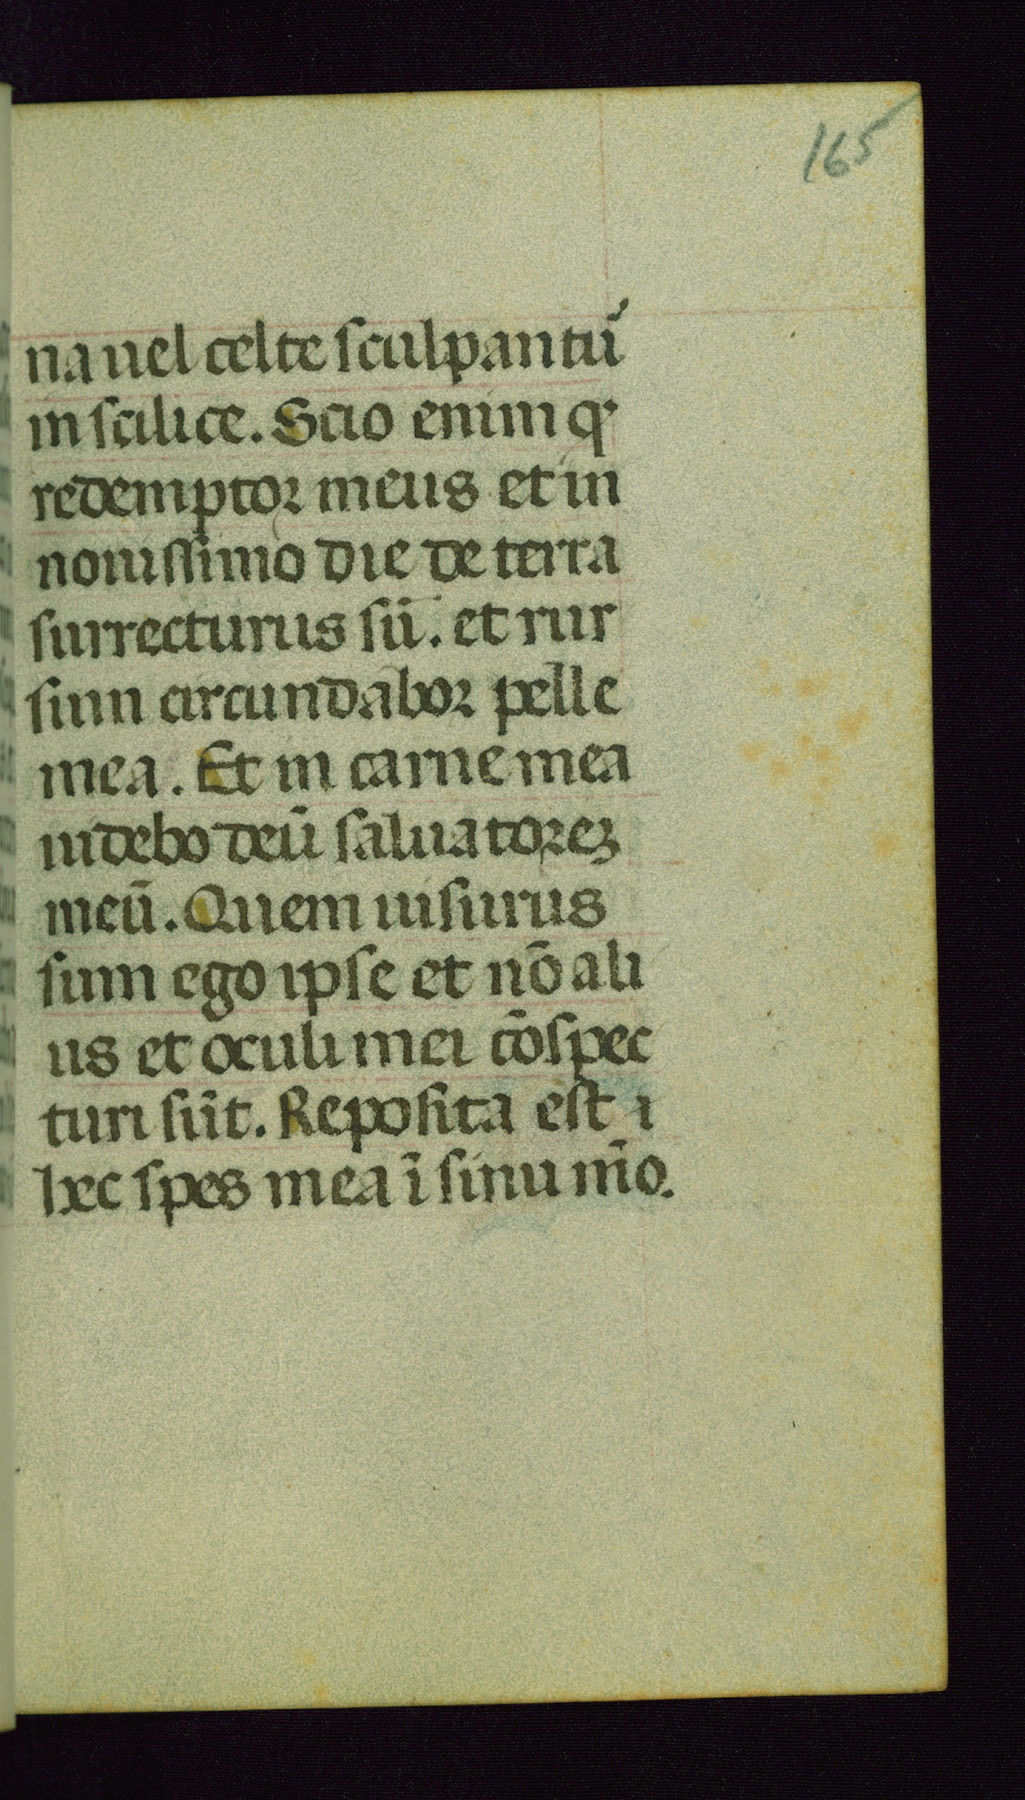 165
na uel celte sculpantu᷑
in scilice. Scio enim q᷑
redemptor meus et in
nouissimo die de terra
surrecturus sū. et rur
sum circundabor pelle
mea. Et in carne mea
uidebo deū saluatoreꝫ
meū. Quem uisurus
sum ego ipse et nō ali
us et oculi mei cōspec
turi sūt. Reposita est i
hec spes mea ī sinu m̄o.